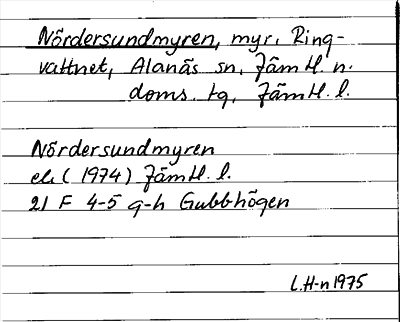 Nördersundmyren, myr, Ring-
vattnet, Alanäs sn, Jämtl. n.
doms. tg, Jämtl. l.
Nördersundmyren
ek. (1974) Jämtl. l.
21 F 4-5 g-h Gubbhögen
L.H-n 1975